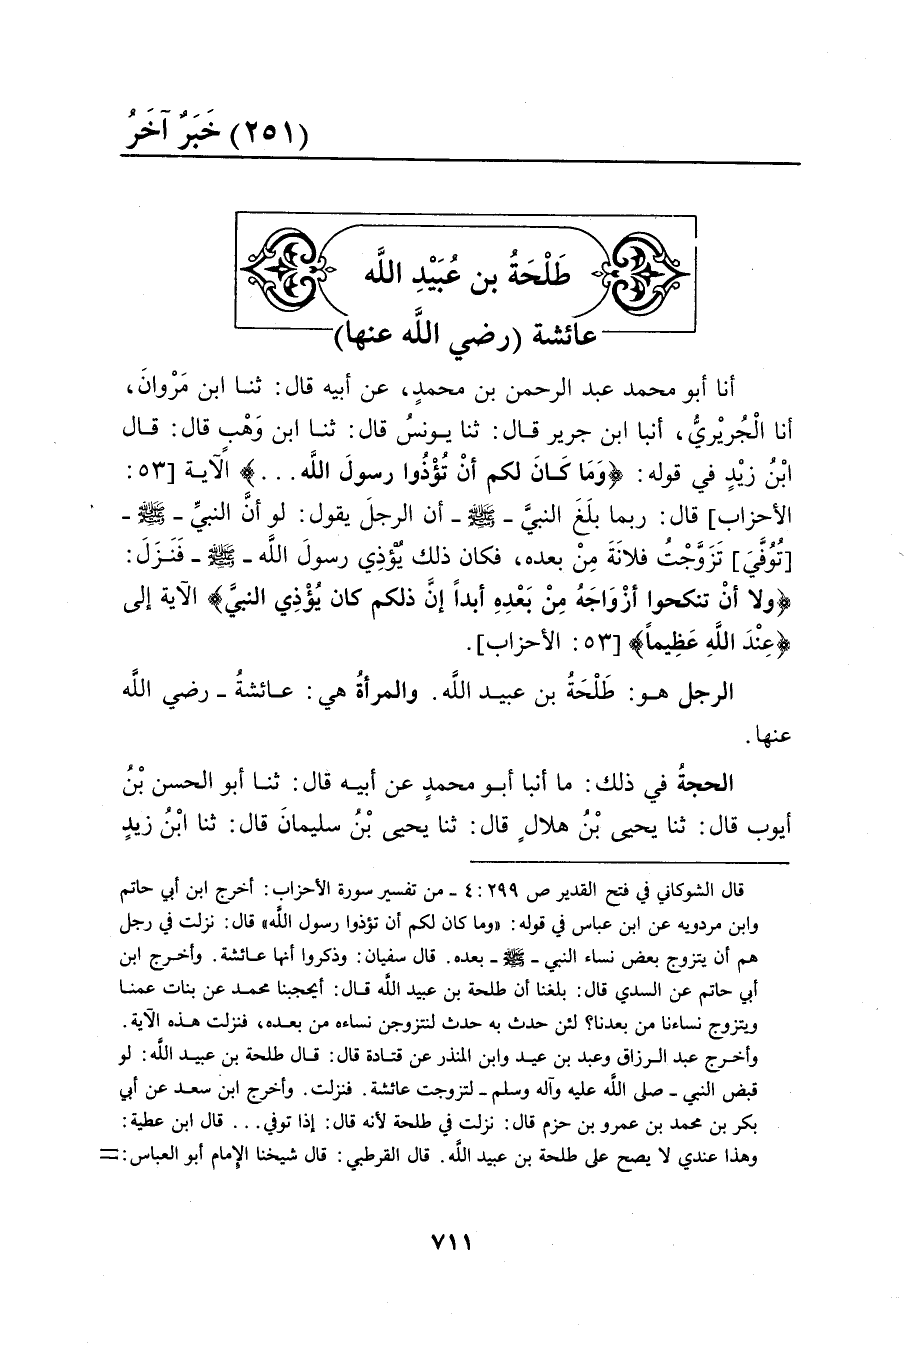 (٢٥١) خَبَرٌ آخَرُ
طَلْحَةُ بن عُبَيْدِ اللَّه
عائشة (رضي اللَّه عنها)
أنا أبو محمد عبد الرحمن بن محمدٍ، عن أبيه قال: ثنا ابن مَرْوانَ،
أنا الْجُرَيْرِيُّ، أنبا ابن جرير قال: ثنا يونسُ قال: ثنا ابن وَهْبٍ قال: قال
ابْنُ زَيْدٍ في قوله: ﴿وَمَا كَانَ لكم أنْ تُؤْذُوا رسولَ اللَّه...﴾ الآية [٥٣:
الأحزاب] قال: ربما بلَغَ النبيَّ - ﷺ - أن الرجلَ يقول: لو أنَّ النبيَّ - ﷺ -
[تُوُفَّيَ] تَزَوَّجْتُ فلانَةَ مِنْ بعده، فكان ذلك يُؤْذِي رسولَ اللَّه - ﷺ - فَنَزَلَ:
﴿ولا أنْ تنكحوا أزْوَاجَهُ مِنْ بَعْدِهِ أبداً إنَّ ذلكم كان يُؤْذِي النبيَّ﴾ الآية إلى
﴿عِنْدَ اللَّهِ عَظِيماً﴾ [٥٣: الأحزاب].
الرجل هو: طَلْحَةُ بن عبيد اللَّه. والمرأةُ هي: عائشةُ - رضي اللَّه
عنها.
الحجةُ في ذلك: ما أنبا أبو محمدٍ عن أبيه قال: ثنا أبو الحسن بْنُ
أيوب قال: ثنا يحيى بْنُ هلالٍ قال: ثنا يحيى بْنُ سليمانَ قال: ثنا ابْنُ زيدٍ
قال الشوكاني في فتح القدير ص ٢٩٩: ٤ - من تفسير سورة الأحزاب: أخرج ابن أبي حاتم
وابن مردويه عن ابن عباس في قوله: «وما كان لكم أن تؤذوا رسول اللَّه» قال: نزلت في رجل
هم أن يتزوج بعض نساء النبي - ﷺ - بعده. قال سفيان: وذكروا أنها عائشة. وأخرج ابن
أبي حاتم عن السدي قال: بلغنا أن طلحة بن عبيد اللَّه قال: أيحجبنا محمد عن بنات عمنا
ويتزوج نساءنا من بعدنا؟ لئن حدث به حدث لنتزوجن نساءه من بعده، فنزلت هذه الآية.
وأخرج عبد الرزاق وعبد بن عيد وابن المنذر عن قتادة قال: قال طلحة بن عبيد اللَّه: لو
قبض النبي - صلى اللَّه عليه وآله وسلم - لتزوجت عائشة. فنزلت. وأخرج ابن سعد عن أبي
بكر بن محمد بن عمرو بن حزم قال: نزلت في طلحة لأنه قال: إذا توفي... قال ابن عطية:
وهذا عندي لا يصح على طلحة بن عبيد اللَّه. قال القرطبي: قال شيخنا الإمام أبو العباس: =
٧١١